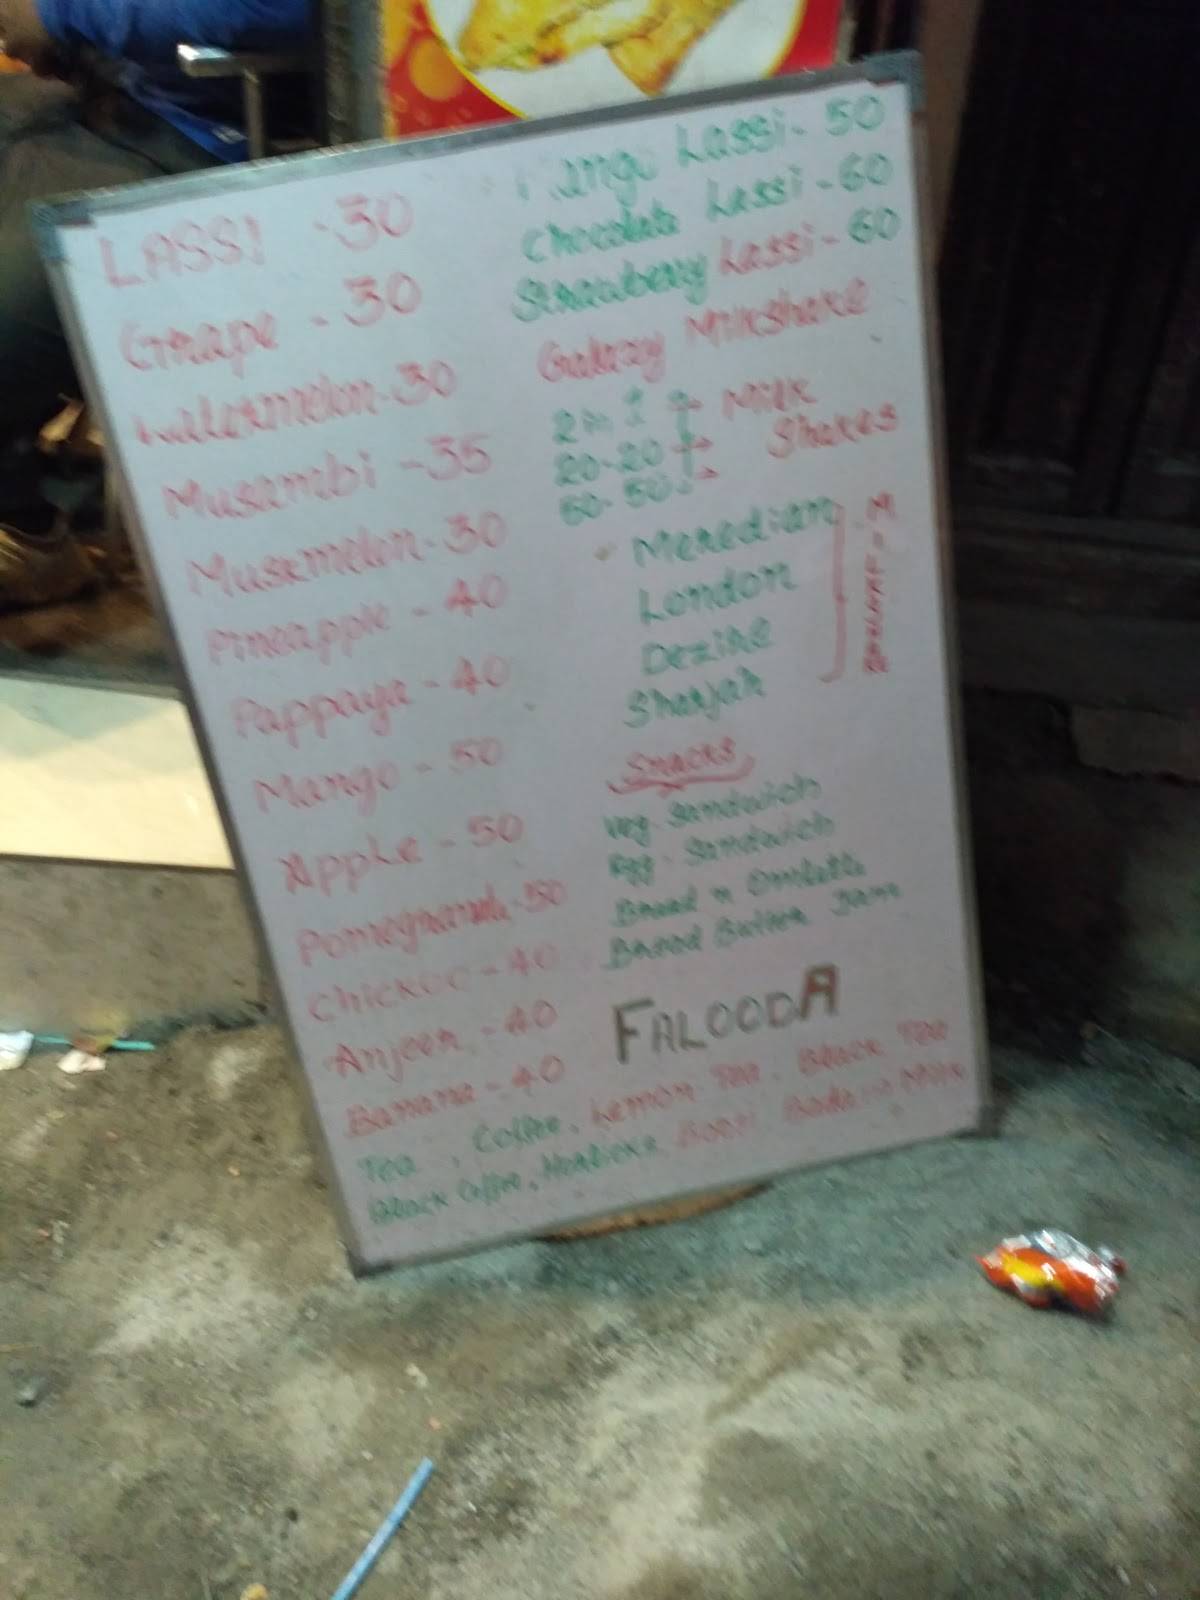 LASSI - 30
Grape - 30
Watermelon - 30
Musambi - 35
Muskmelon - 30
Pineapple - 40
Pappaya - 40
Mango - 50
Apple - 50
Pomegranate - 50
Chickoo - 40
Anjeer - 40
Banana - 40
Lassi - 50
Chocolate Lassi - 60
Strawberry Lassi - 60
Galaxy Milkshake
2 in 1
20-20
50-50
Milk
Shakes
Meredian
London
Dezire
Sharjah
MILKSHAKE
Snacks
Veg. Sandwich
Egg. Sandwich
Bread n Omlette
Bread Butter Jam
FALOODA
Tea, Coffee, Lemon Tea, Black Tea
Black Coffee, Horlicks, Boost, Badam Milk